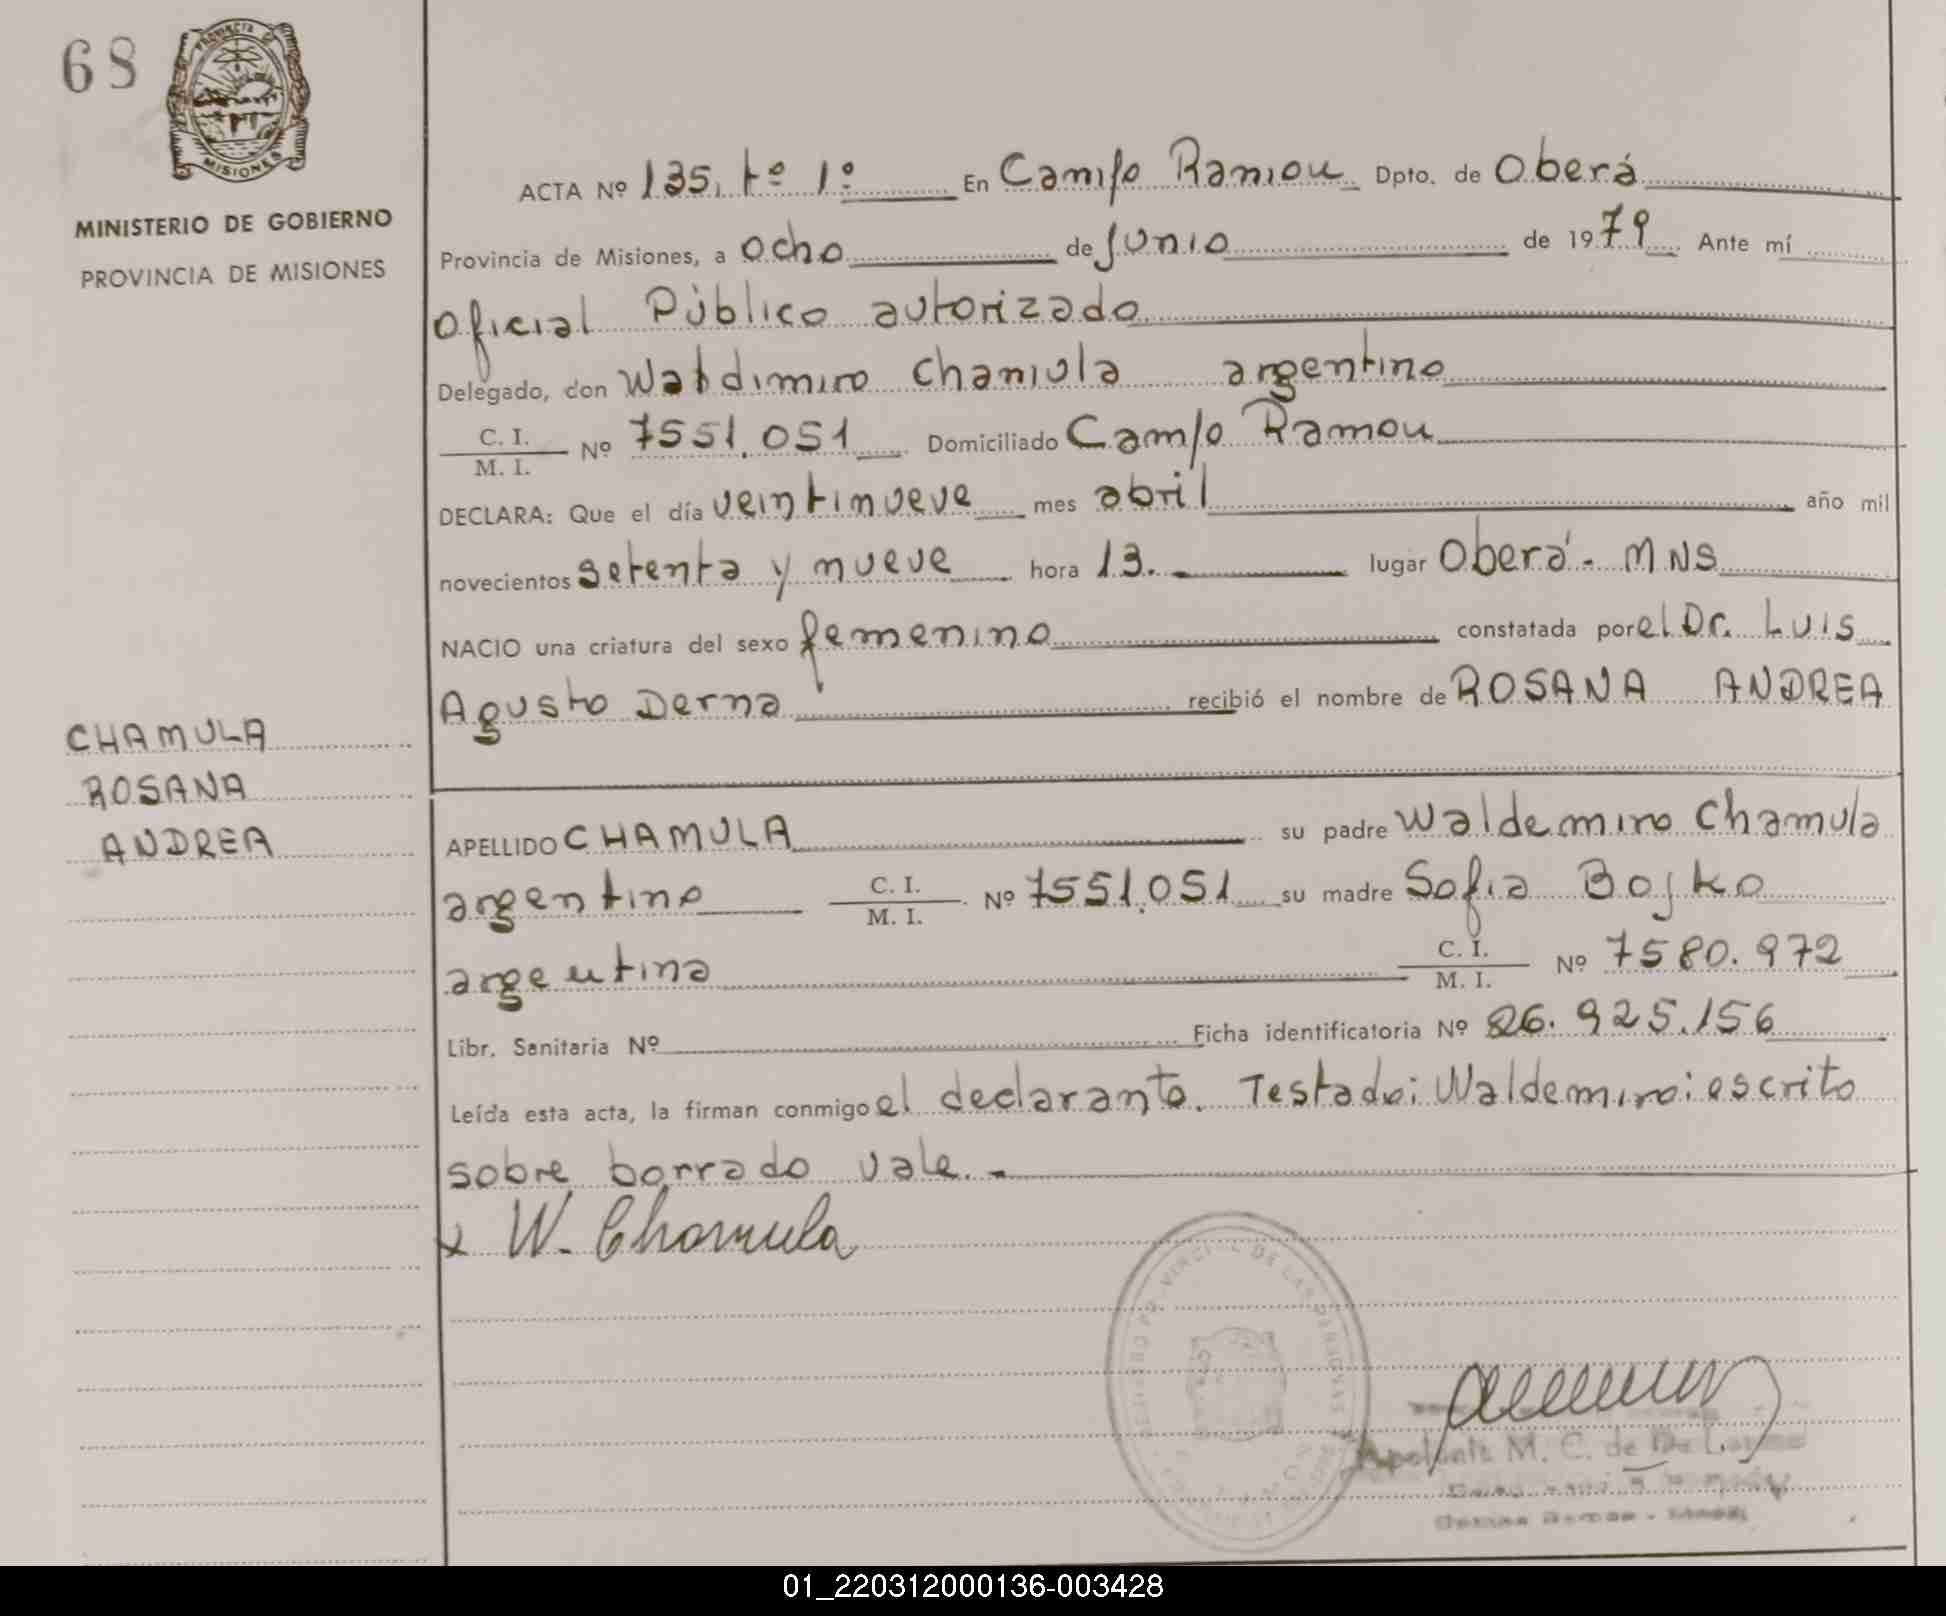 68
PROVINCIA DE
MISIONES
MINISTERIO DE GOBIERNO
PROVINCIA DE MISIONES
CHAMULA
ROSANA
ANDREA
ACTA Nº 135. tº 1º En Campo Ramon Dpto. de Oberá
Provincia de Misiones, a ocho de Junio de 1979 Ante mí
oficial Público autorizado
Delegado, don Waldimiro Chamula argentino
C. I. / M. I. Nº 7551.051 Domiciliado Campo Ramon
DECLARA: Que el día veintinueve mes abril año mil
novecientos setenta y nueve hora 13. lugar Oberá - MNS
NACIO una criatura del sexo femenino constatada por el Dr. Luis
Agusto Derna recibió el nombre de ROSANA ANDREA
APELLIDO CHAMULA su padre Waldemiro Chamula
argentino C. I. / M. I. Nº 7551.051 su madre Sofia Bojko
argentina C. I. / M. I. Nº 7580.972
Libr. Sanitaria Nº Ficha identificatoria Nº 26.925.156
Leída esta acta, la firman conmigo el declarante. Testado: Waldemiro: escrito
sobre borrado vale. -
x W. Chamula
M. C. de
01_220312000136-003428